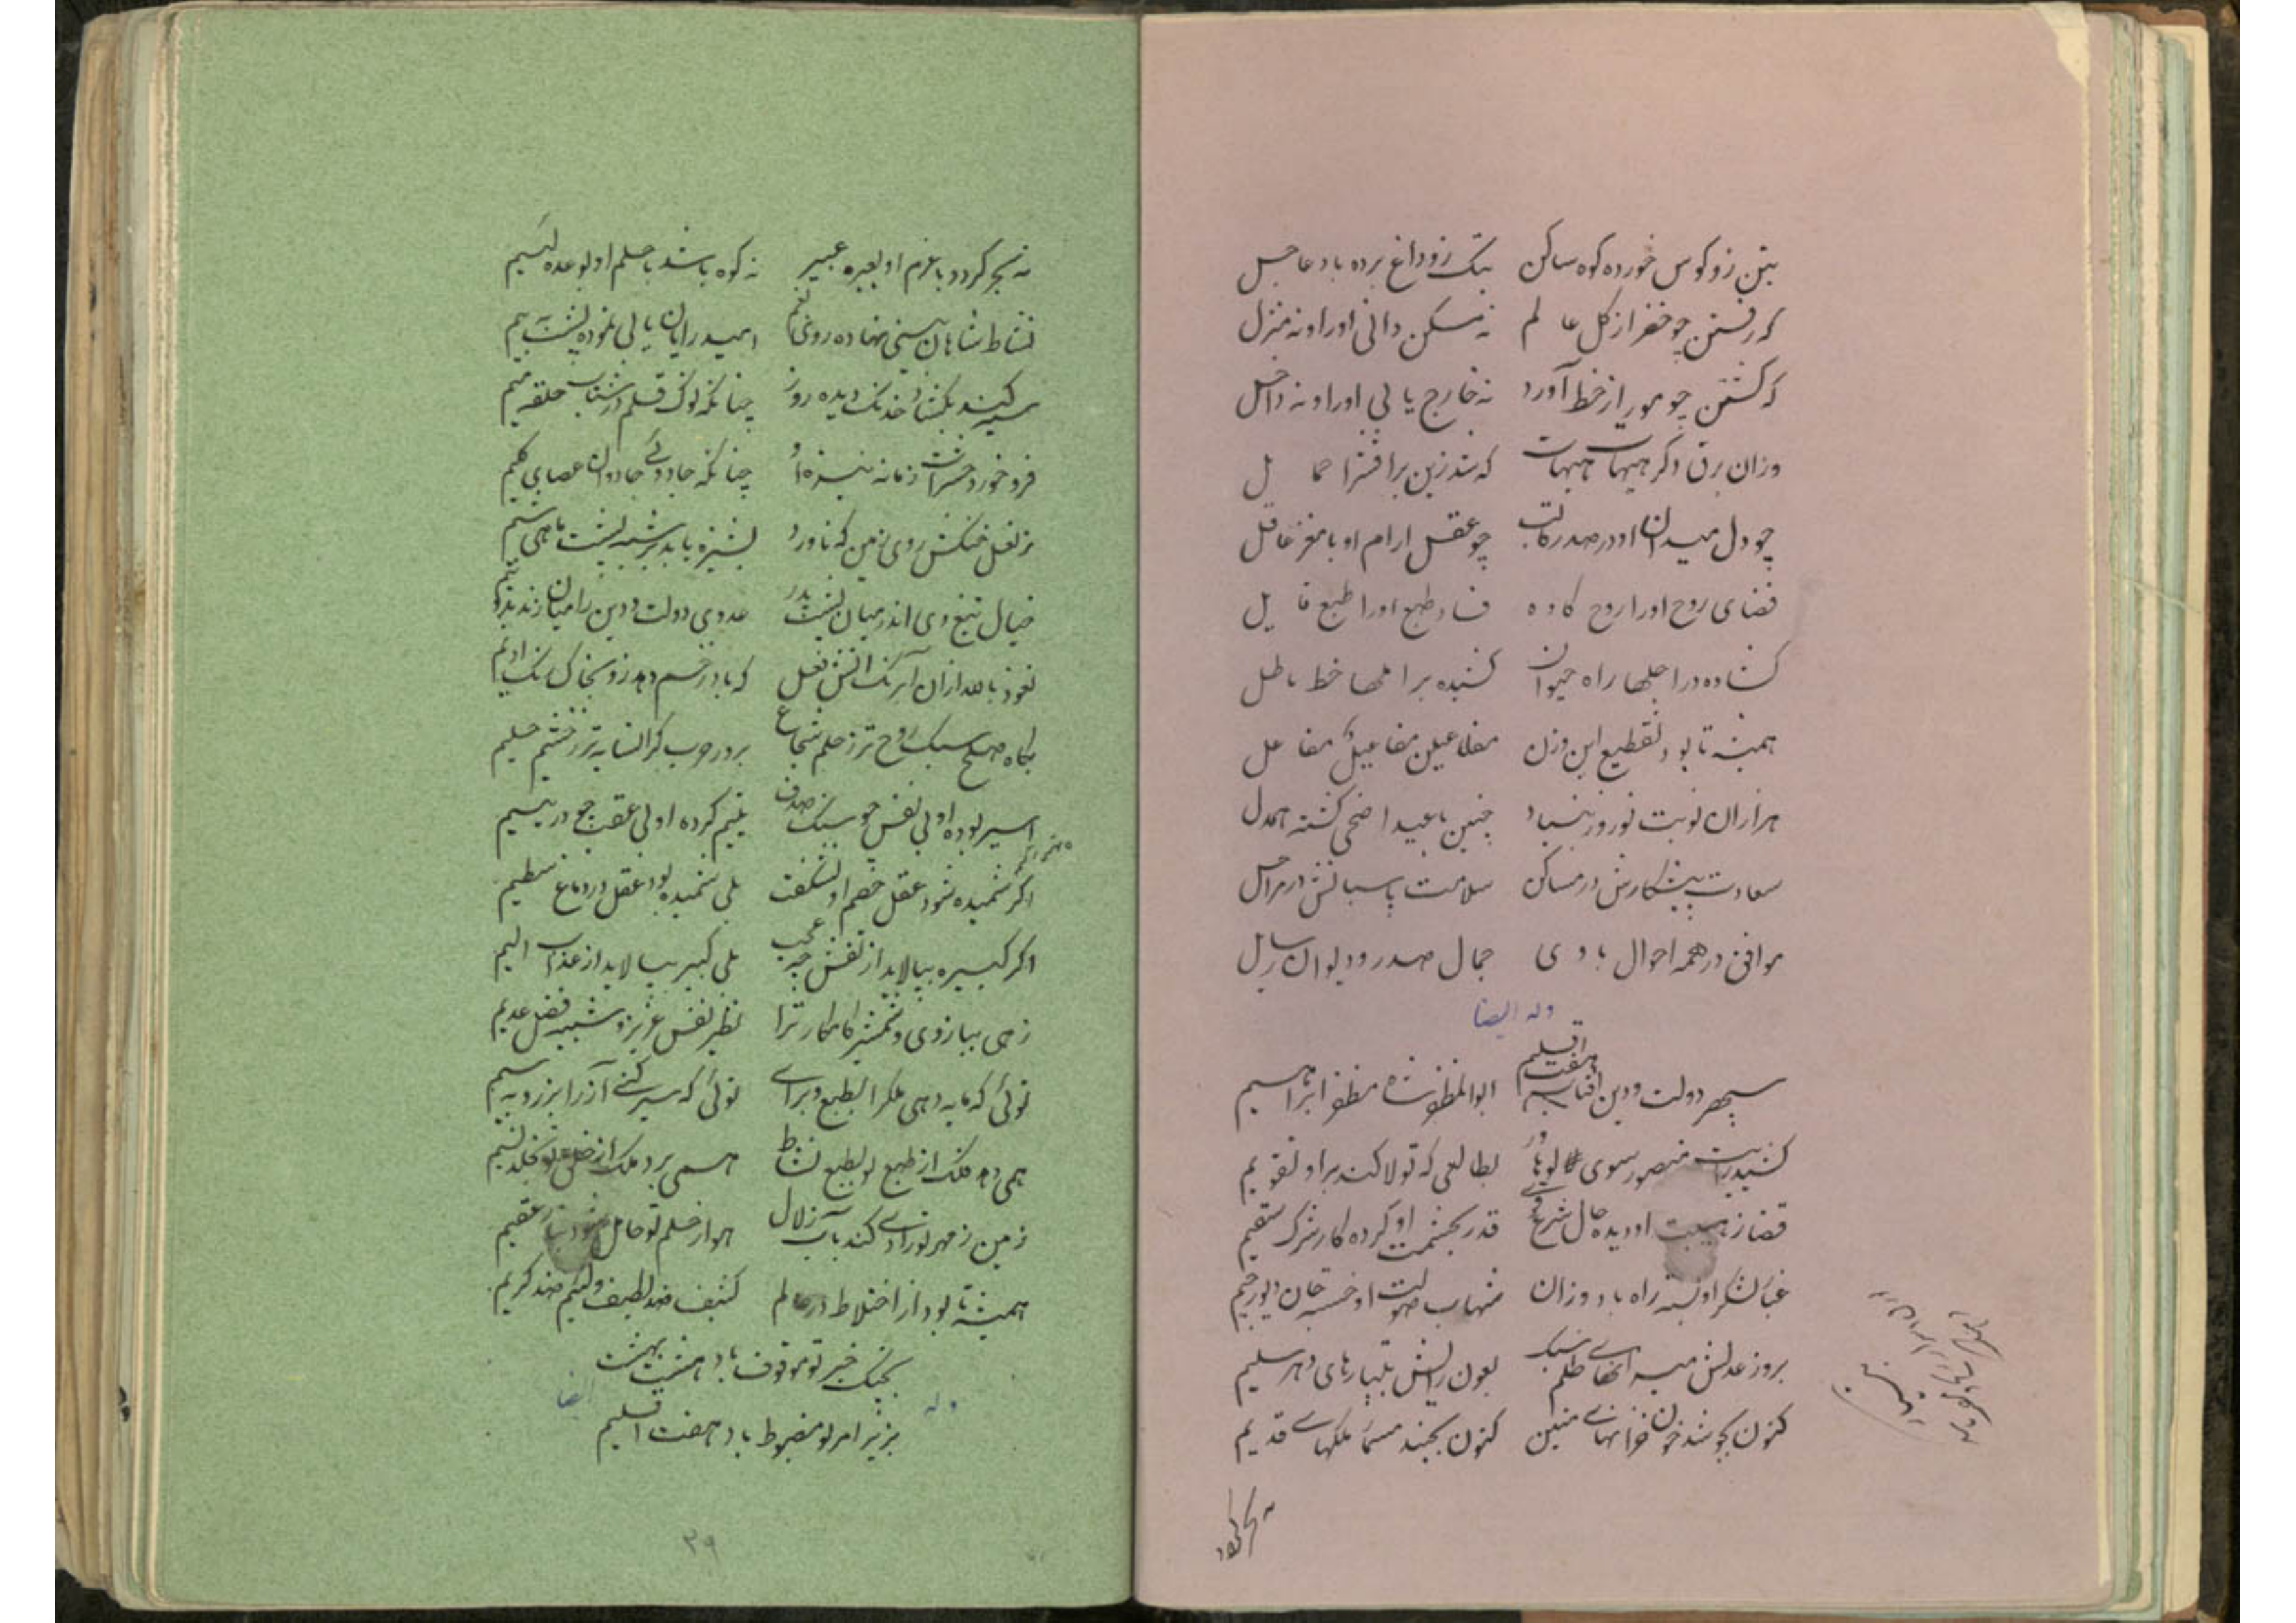 بتن زو کوس خورده کوه ساکن بتک زو داغ برده باد عاجل
که رفتن چو خضر از کل عالم نه مسکن دانی او را و نه منزل
که کشتن چو مور از خط آورد نه خارج یابی او را و نه داخل
وزان برق دکر هیهات هیهات که شد زین بر افترا حمایل
چو دل میدان او در صدر قالب چو عقل ارام او با مغز عاقل
فضای روح او را روح کاده فساد طبع او را طبع قایل
کشاده در اجلها راه حیوان کشیده بر املها خط باطل
همیشه تا بود تقطیع این وزن مفاعیلن مفاعیلن مفاعل
هزاران نوبت نوروز بنیاد چنین با عید اضحی کشته همدل
سعادت پیشکارش در مساکن سلامت پاسبانش در مراحل
موافق در همه احوال با وی جمال صدر و دیوان رسایل
وله ایضا
سپهر دولت و دین افتاب هفت اقلیم ابوالمظفر شاه مظفر ابراهیم
کشید رایت منصور سوی لوهاور بطالعی که تولا کند برو تقویم
قضا ز هیبت او دیده حال شرع قوی قدر بحشمت او کرده کار شرک سقیم
غبار لشکر او بسته راه باد وزان شهاب صولت او خسته جان دیو رجیم
بروز عدلش میزانهای ظلم سبک بعون رایش بیمارهای دهر سلیم
کنون بجوشد خون خوانهای متین کنون بجنبد مسمار ملکهای قدیم
نه بحر کردد
نه بحر کردد با عزم او بعبره عبیر نه کوه باشد با حلم او بوعده لئیم
نشاط شاهان بینی نهاده روی بغم امید رایان یابی نموده پشت به بیم
سرکنند بکشاد خدنک دیده روز چنانکه نوک قلم در شتاب حلقه میم
فرو خورد حشرات زمانه نیزه او چنانکه جادوئی جادوان عصای کلیم
ز نعل خنکش روی زمین که ناورد پشیزه یابد بر شبه پشت ماهی شیم
خیال تیغ وی اندر میان پشت پدر عدوی دولت و دین را میان زند بدو نیم
نعوذ بالله ازان آب رنک اتش فعل که باد زخم دهد زو بخاک رنک ادیم
بکاه صلح سبک روح تر ز حلم شجاع بروز حرب کرانسایه تر ز خشم حلیم
اسیر بوده او بی نفس چو سنک صدف یتیم کرده او بی عقب چو در یتیم
اکر شمیده شود عقل خصم او نشکفت بلی شمیده بود عقل در دماغ سطیم
اکر کبیره بیالاید از نفسش چه عجب بلی کبیر بیالاید از عذاب الیم
زهی ببازوی و شمشیر کامکار ترا نظیر نفس عزیز و شبیه فضل عدیم
توئی که مایه دهی ملک را بطبع و برای توئی که سیر کنی آز را بزر و بسیم
همی دهد فلک از طبع تو بطبع نشاط همی برد ملک از خلق تو بخلد نسیم
زمین ز مهر تو زادی کند بآب زلال هوا ز حلم تو حامل شود بباد عقیم
همیشه تا بود از اختلاط در عالم کثیف ضد لطیف و لئیم ضد کریم
بجنک خیر تو موقوف باد هشت بهشت
وله ایضا
بزیر امر تو مضبوط باد هفت اقلیم
۳۹